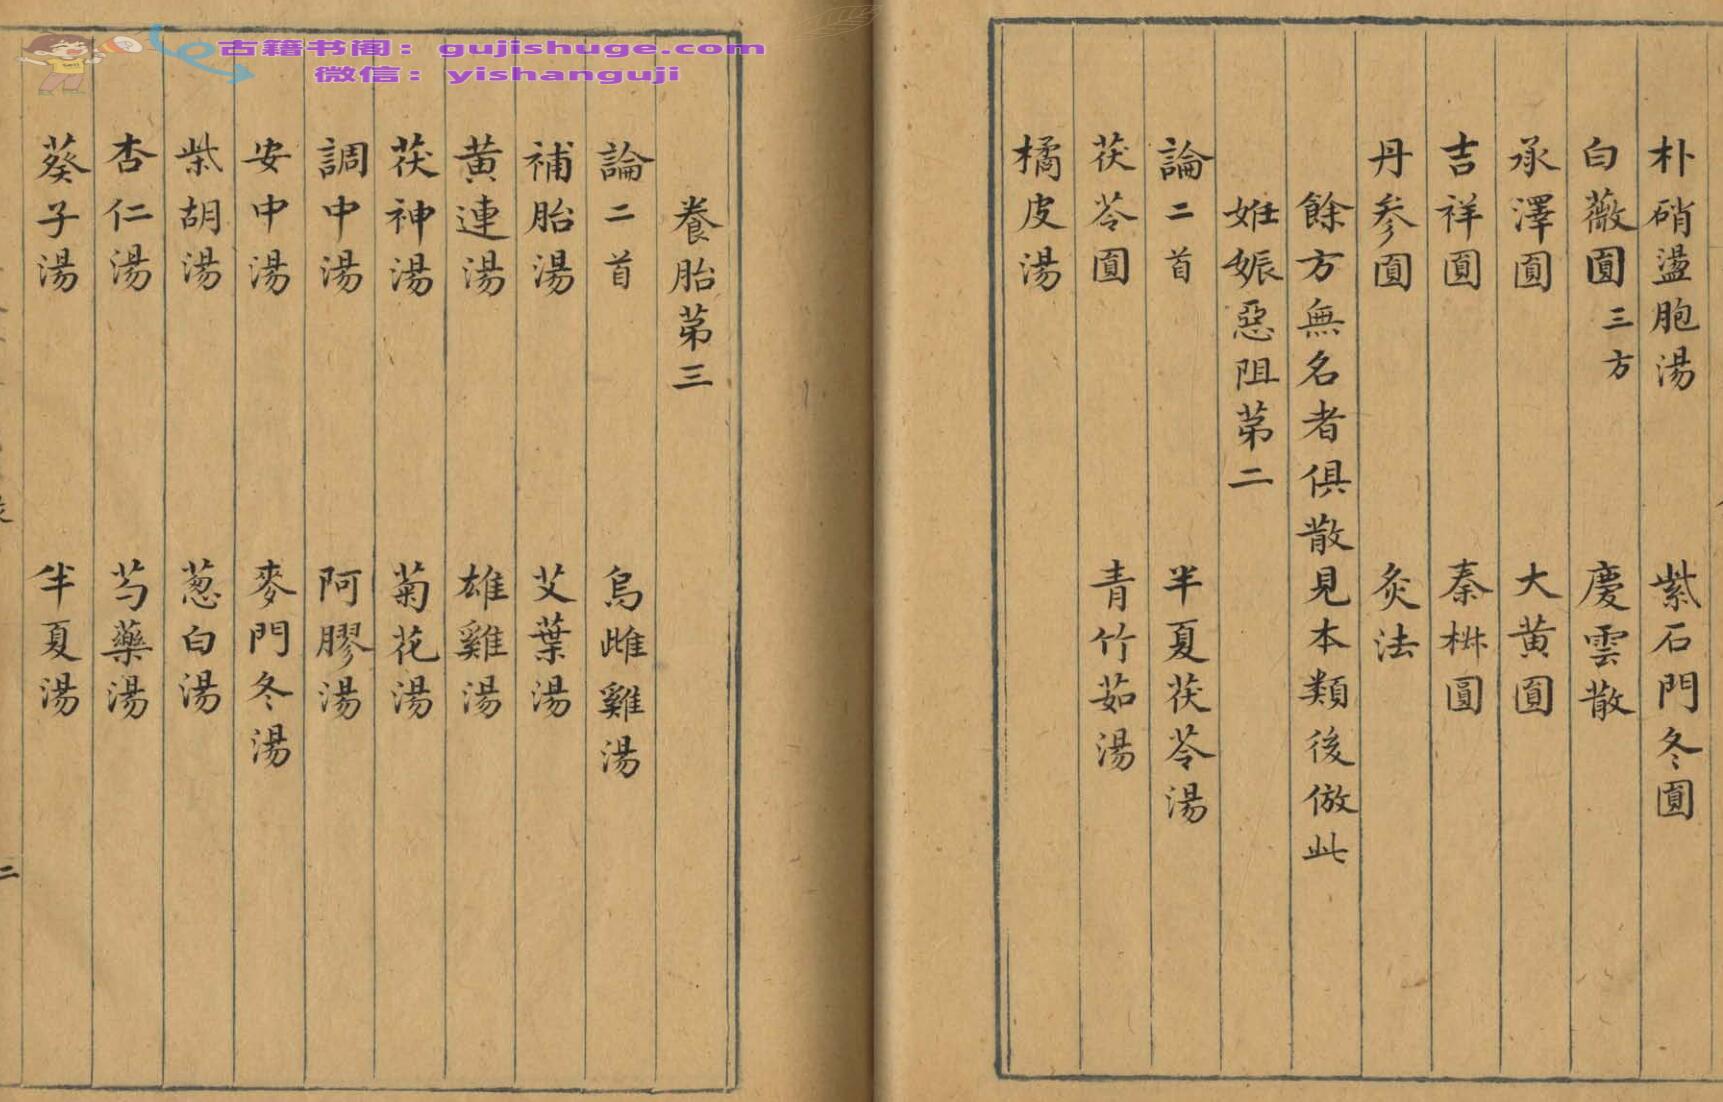 古籍书阁：gujishuge.com
微信：yishanguji
朴硝盪胞湯 紫石門冬圓
白薇圓三方 慶雲散
承澤圓 大黄圓
吉祥圓 秦椒圓
丹参圓 灸法
餘方無名者俱散見本類後倣此
妊娠惡阻苐二
論二首 半夏茯苓湯
茯苓圓 青竹茹湯
橘皮湯
養胎苐三
論二首 烏雌雞湯
補胎湯 艾葉湯
黄連湯 雄雞湯
茯神湯 菊花湯
調中湯 阿膠湯
安中湯 麥門冬湯
柴胡湯 葱白湯
杏仁湯 芍藥湯
葵子湯 半夏湯
二